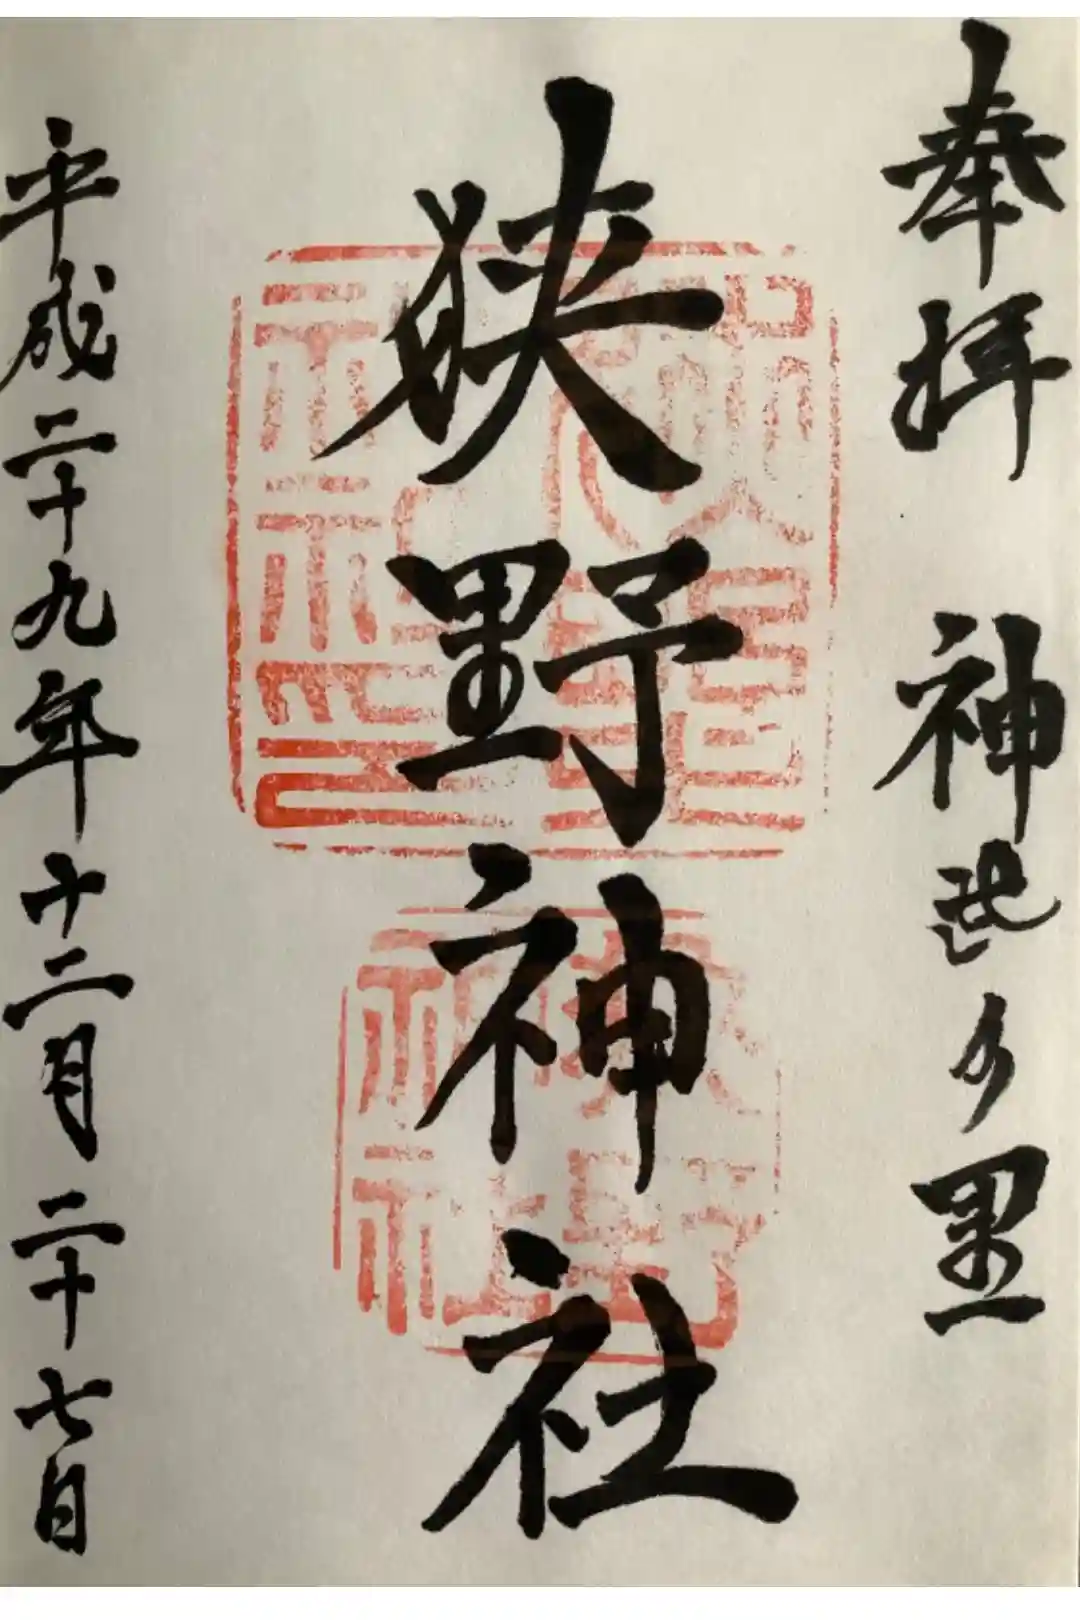 奉拝　神武乃里
狭野神社
平成二十九年十二月二十七日